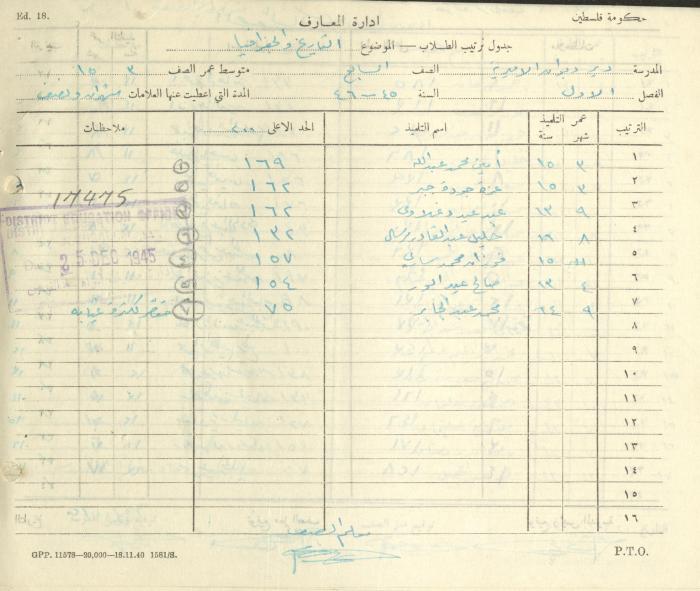 Ed. 18.
حكومة فلسطين
ادارة المعارف
جدول ترتيب الطلاب — الموضوع التاريخ والجغرافيا
المدرسة دير ديوان الاميرية الصف السابع متوسط عمر الصف ٣ ١٥
الفصل الاول السنة ٤٥-٤٦ المدة التي اعطيت عنها العلامات شهران ونصف
الترتيب عمر التلميذ شهر سنة اسم التلميذ الحد الاعلى ٢٠٠ ملاحظات
١ ٣ ١٥ أمين محمد عبدالله ١٦٩
٢ ٣ ١٥ عزة جودة جبر ١٦٢
٣ ٩ ١٣ عبد ١٦٢
٤ ٨ ١٦ خليل عبد القادر ١٣٢
٥ ١٥ فوزان محمد ١٥٧
٦ ٤ ١٣ صالح عبد النور ١٥٤
٧ ٩ ١٤ محمد عبد الجابر ٧٥ ٧ مقصر لكثرة غيابه
٨
٩
١٠
١١
١٢
١٣
١٤
١٥
١٦
17475
DISTRICT EDUCATION OFFICE
DEC 1945
معلم الصف
GPP. 11578—20,000—18.11.40 1581/S.
P.T.O.